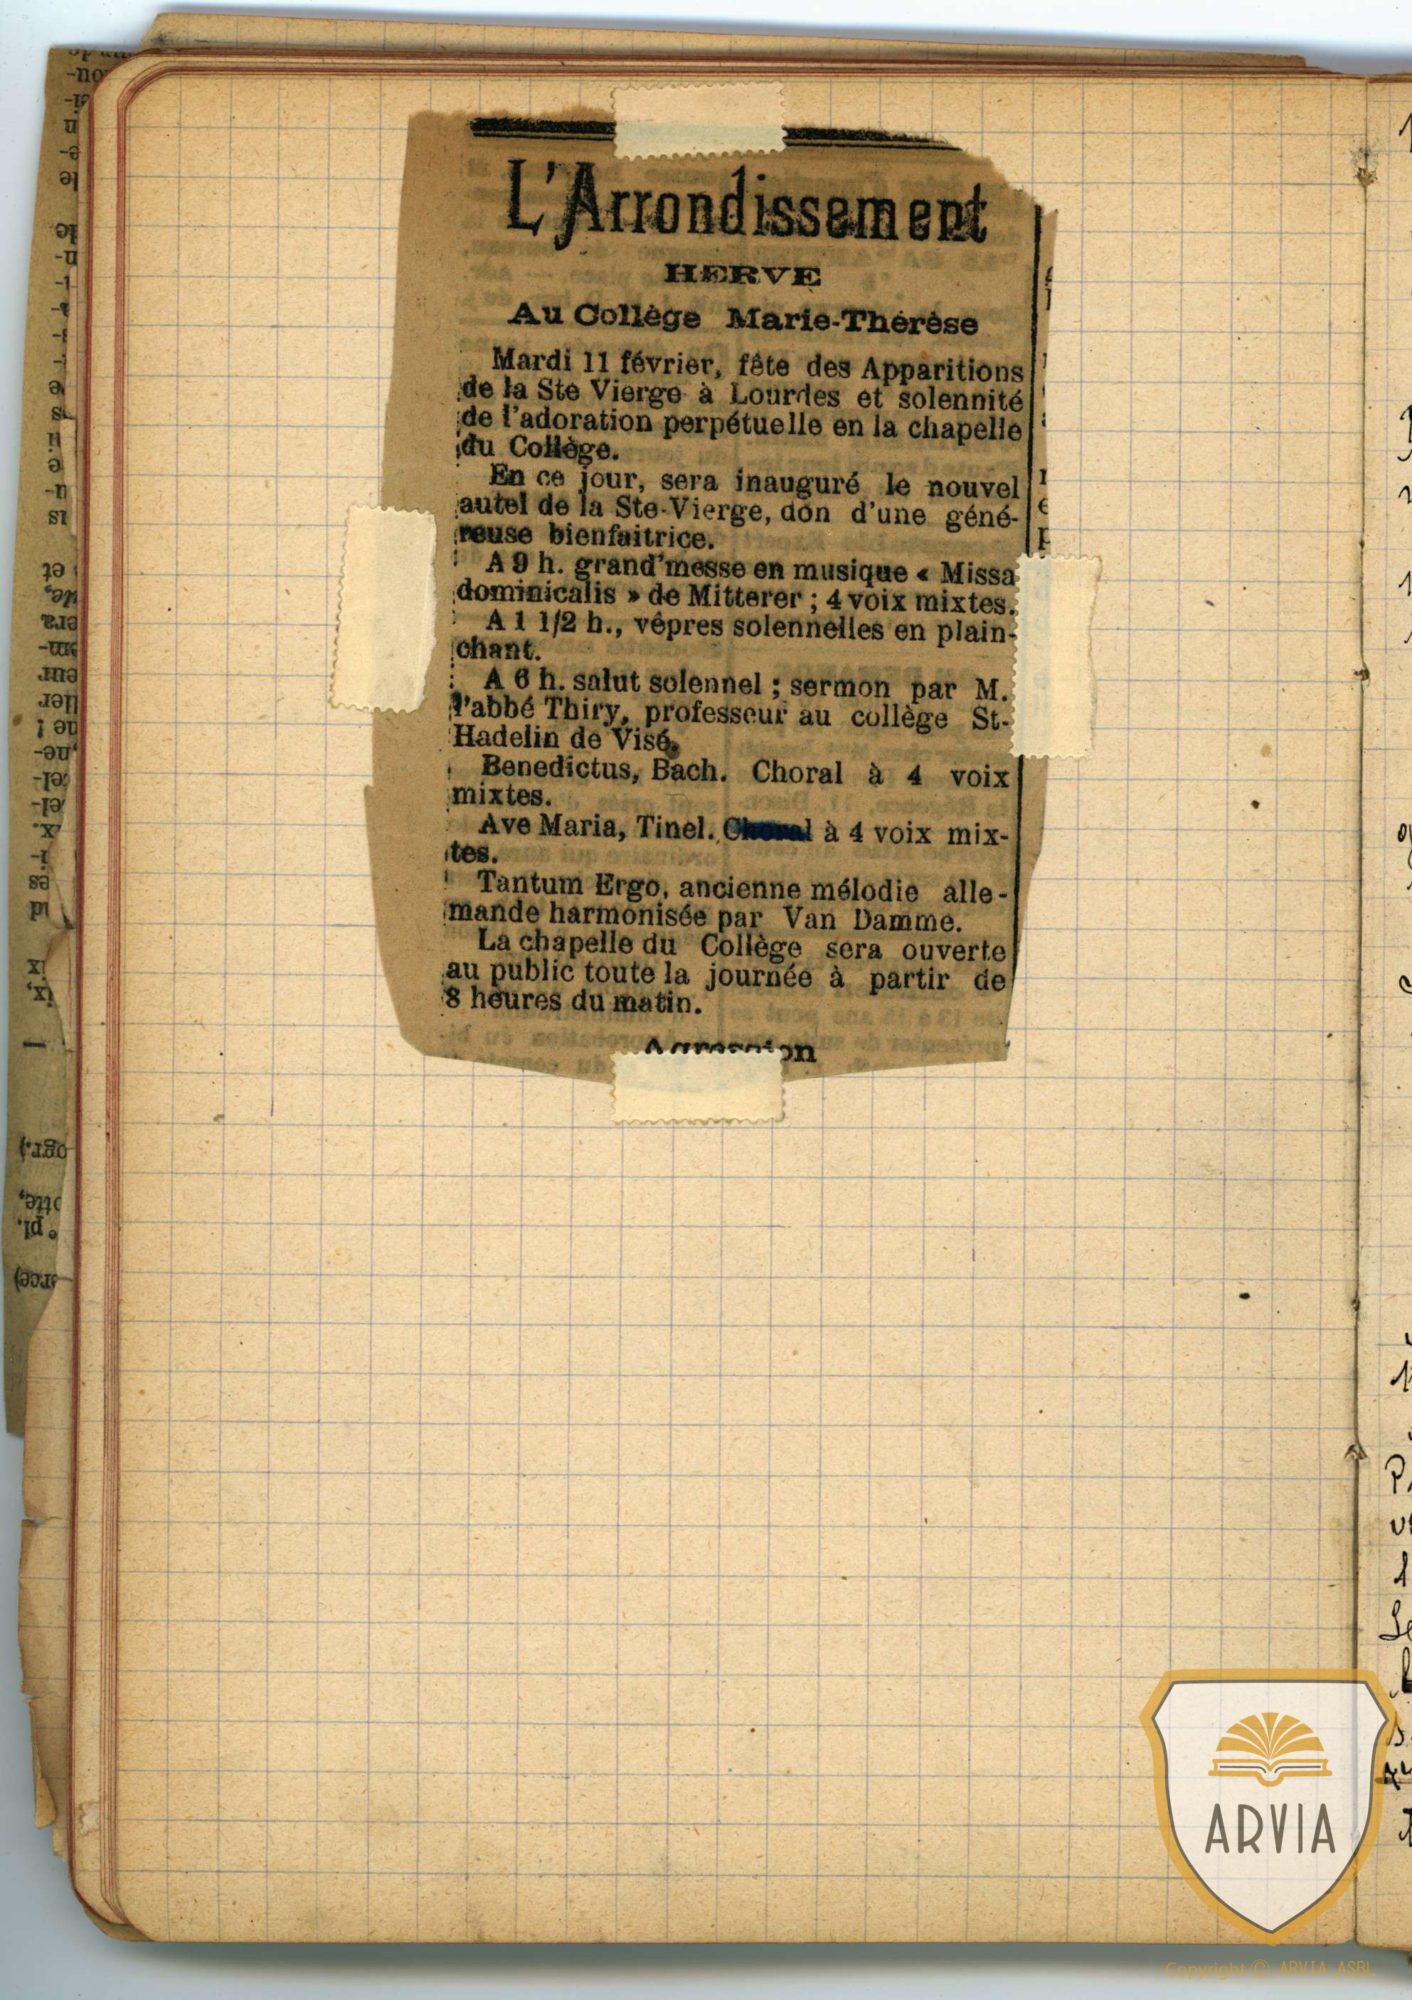 L'Arrondissement
HERVE
Au Collège Marie-Thérèse
Mardi 11 février, fête des Apparitions
de la Ste Vierge à Lourdes et solennité
de l'adoration perpétuelle en la chapelle
du Collège.
En ce jour, sera inauguré le nouvel
autel de la Ste-Vierge, don d'une géné-
reuse bienfaitrice.
A 9 h. grand'messe en musique « Missa
dominicalis » de Mitterer ; 4 voix mixtes.
A 1 1/2 h., vêpres solennelles en plain-
chant.
A 6 h. salut solennel ; sermon par M.
l'abbé Thiry, professeur au collège St-
Hadelin de Visé.
Benedictus, Bach. Choral à 4 voix
mixtes.
Ave Maria, Tinel. Choral à 4 voix mix-
tes.
Tantum Ergo, ancienne mélodie alle-
mande harmonisée par Van Damme.
La chapelle du Collège sera ouverte
au public toute la journée à partir de
8 heures du matin.
Agression
ARVIA
Copyright © ARVIA ASBL